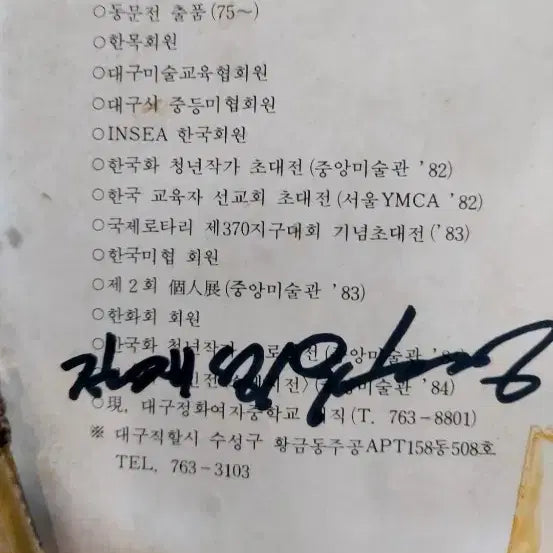 ○동문전 출품(75~)
○한목회원
○대구미술교육협회원
○대구시 중등미협회원
○INSEA 한국회원
○한국화 청년작가 초대전(중앙미술관 '82)
○한국 교육자 선교회 초대전(서울YMCA '82)
○국제로타리 제370지구대회 기념초대전('83)
○한국미협 회원
○제2회 個人展(중앙미술관 '83)
○한화회 회원
○한국화 청년작가
'84)
○現, 대구정화여자중학교 재직(T. 763-8801)
※ 대구직할시 수성구 황금동주공APT158동508호
TEL, 763-3103